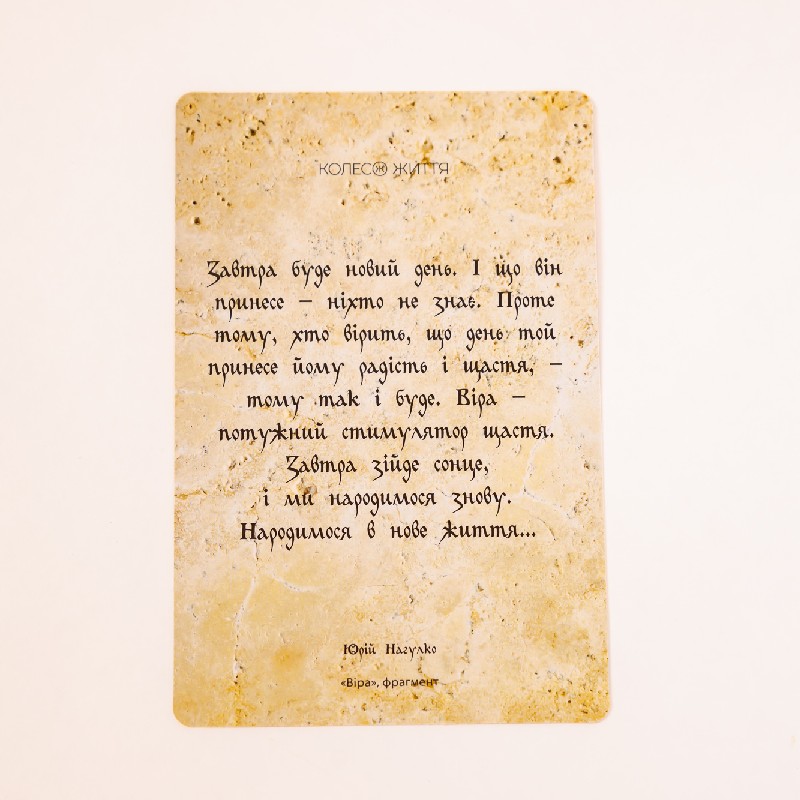 КОЛЕСО ЖИТТЯ
Завтра буде новий день. І що він
принесе – ніхто не знає. Проте
тому, хто вірить, що день той
принесе йому радість і щастя, –
тому так і буде. Віра –
потужний стимулятор щастя.
Завтра зійде сонце,
і ми народимося знову.
Народимося в нове життя...
Юрій Нагулко
«Віра», фрагмент